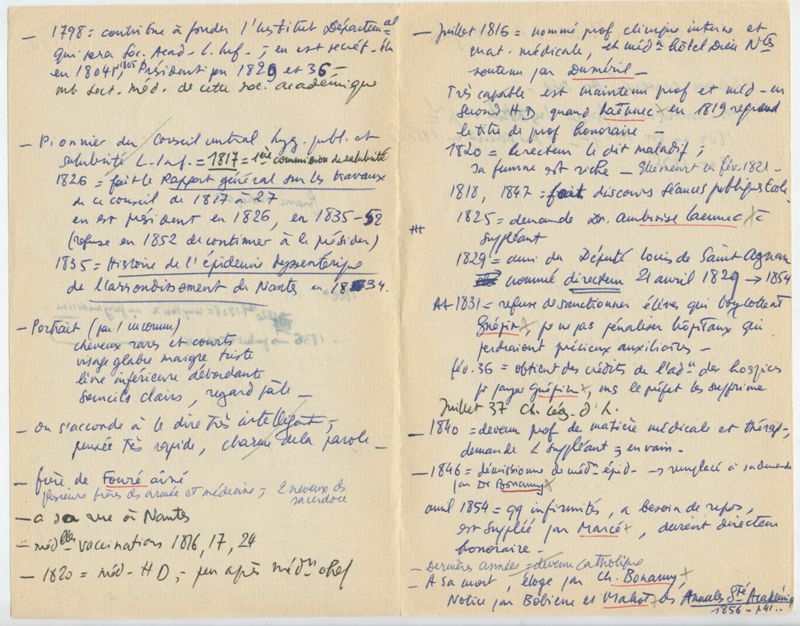 — 1798 = contribue à fonder l'Institut Départemental
qui sera Soc. Acad. L. Inf. —; en est secrét.
en 1804, 1805, Président en 1829 et 36 —
mb sect. méd. de cette soc. académique
— Pionnier du Conseil central hyg. publ. et
salubrité L-Inf. = 1817 = 1ère commission de salubrité
1826 = fait le Rapport général sur les travaux
de ce conseil de 1817 à 27
en est président en 1826, en 1835-52
(refuse en 1852 de continuer à le présider)
1835 = Histoire de l'épidémie dyssentérique
de l'arrondissement de Nantes en 1834.
— Portrait (par 1 inconnu)
cheveux rares et courts
visage glabre maigre triste
lèvre inférieure débordante
sourcils clairs, regard pâle —
— on s'accorde à le dire très intelligent;
pensée très rapide, charme de la parole —
— frère de Fouré aîné
plusieurs frères des armée et médecine; 2 neveux ds sacerdoce
— a sa rue à Nantes
— médlles vaccinations 1816, 17, 24
— 1820 = méd. HD, — peu après médn chef
— Juillet 1816 = nommé prof clinique interne et
mat. médicale, et médn hôtel Dieu Ntes
soutenu par Duméril —
Très capable est maintenu prof et méd en
second H.D. quand Laënnec x en 1819 reprend
le titre de prof honoraire —
1820 = le recteur le dit maladif;
sa femme est riche — Elle meurt en fév. 1821 —
1818, 1847 = fait discours séances publiques Ecole
1825 = demande Dr. Ambroise Laennec x c
suppléant
1829 = ami du Député Louis de Saint Agnan
nommé directeur 21 avril 1829 → 1854
1831 = refuse de sanctionner élèves qui boycottent
Guépin x, pr ne pas pénaliser hôpitaux qui
perdraient précieux auxiliaires —
fév. 36 = obtient des crédits de l'adn des hospices
pr payer Guépin x, ms le préfet les supprime
Juillet 37 Ch. Lég. d'H.
— 1840 = devenu prof de matière médicale et thérap.,
demande 1 suppléant = en vain.
— 1846 = démissionne de méd. épid. → remplacé à sa demande
par Dr Bonamy x
avril 1854 = qq infirmités, a besoin de repos,
est suppléé par Marcé x, devient directeur
honoraire —
— Dernières années = devenu catholique
— A sa mort, éloge par Ch. Bonamy, x
Notice par Bobierre et Mahot x ds Annales Sté Académiq
1856 — p41..